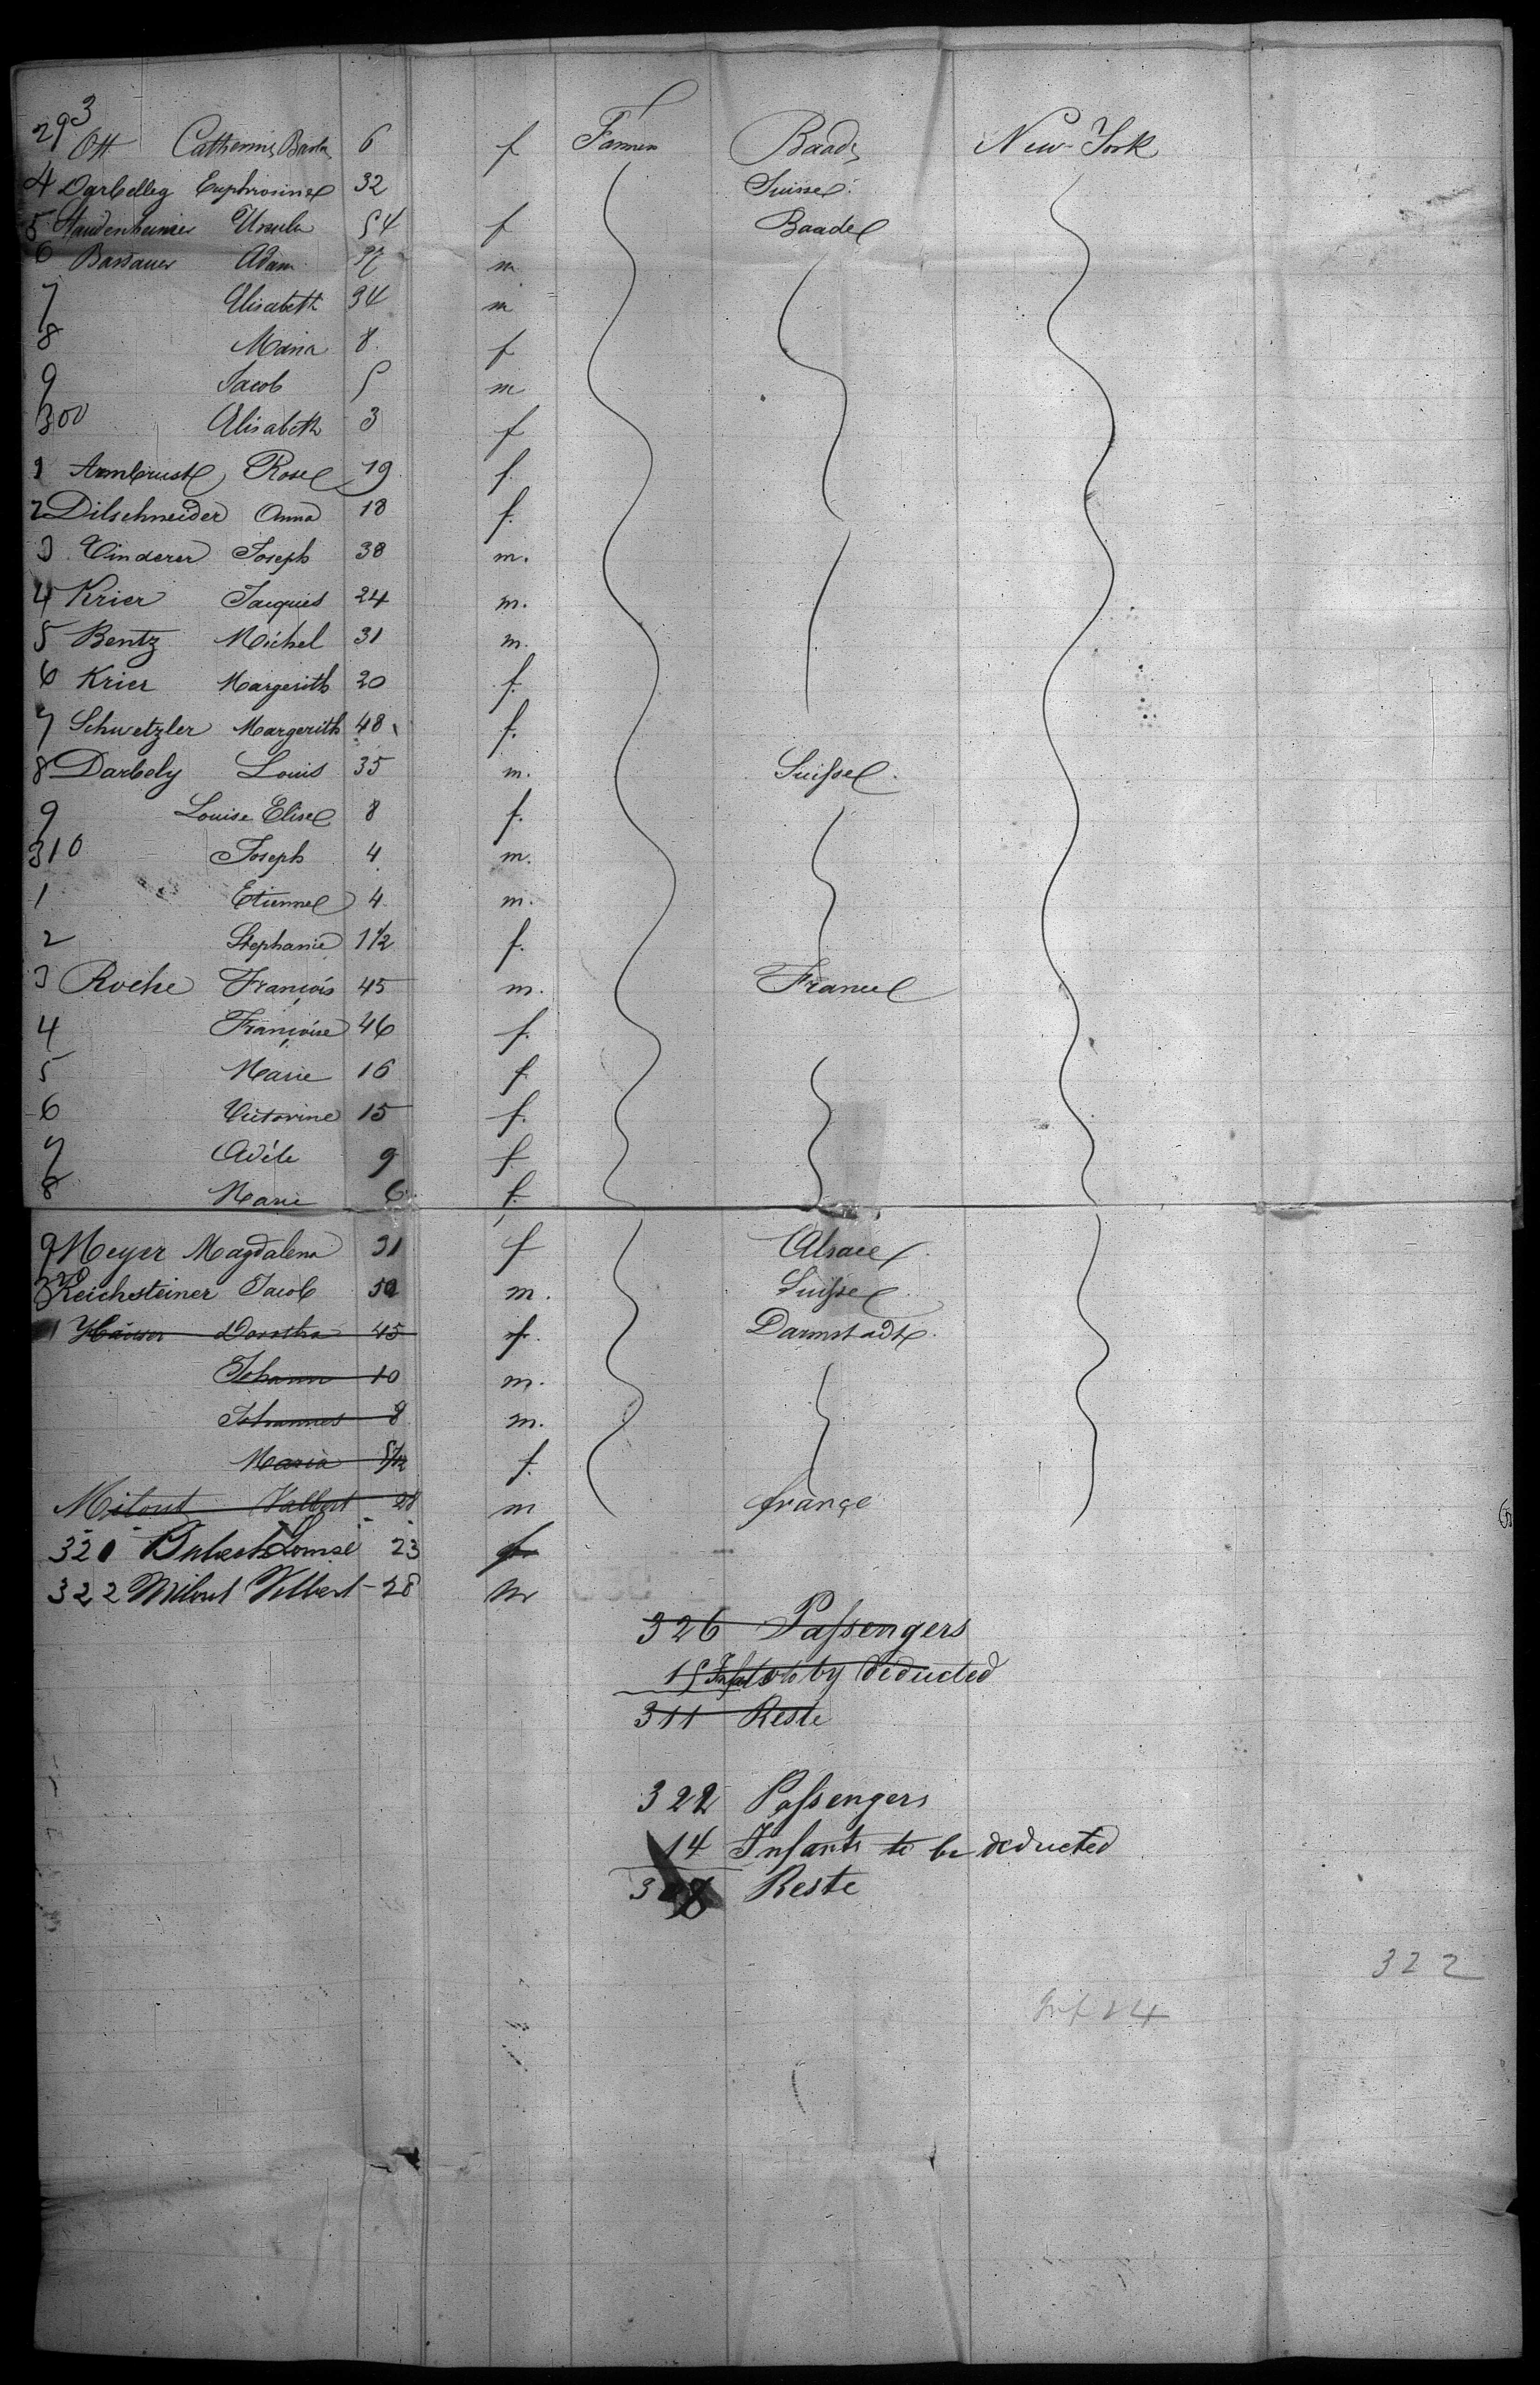 293 Ott Catherina Barba 6 f Farmer Baade New-York
4 Darbelley Euphrosine 32 Suisse
5 Haudenheimer Ursula 54 f Baade
6 Bassauer Adam 37 m
7 Elisabeth 34 m
8 Maria 8 f
9 Jacob 5 m
300 Elisabeth 3 f
1 Armbruste Rose 19 f
2 Dilschneider Anna 18 f.
3 Vinderer Joseph 38 m.
4 Krier Jacques 24 m.
5 Bentz Michel 31 m.
6 Krier Margerith 20 f.
7 Schwetzler Margerith 48 f.
8 Darbely Louis 35 m. Suisse
9 Louise Elise 8 f.
310 Joseph 4 m.
1 Etienne 4 m.
2 Stephanie 1 1/2 f.
3 Roche François 45 m. France
4 Françoise 46 f.
5 Marie 16 f
6 Victorine 15 f.
7 Adéle 9 f
8 Marie 6 f.
9 Meyer Magdalena 31 f Alsace
320 Reichsteiner Jacob 50 m. Suisse
1 Häuser Dorotha 45 f. Darmstadt
Johann 10 m.
Johannes 8 m.
Maria f.
Milout Valbert 28 m françe
321 Louise 23 f
322 Milout Valbert 28 m
326 Passengers
15 Infants to by deducted
311 Reste
322 Passengers
14 Infants to be deducted
308 Reste
322
Inf 14